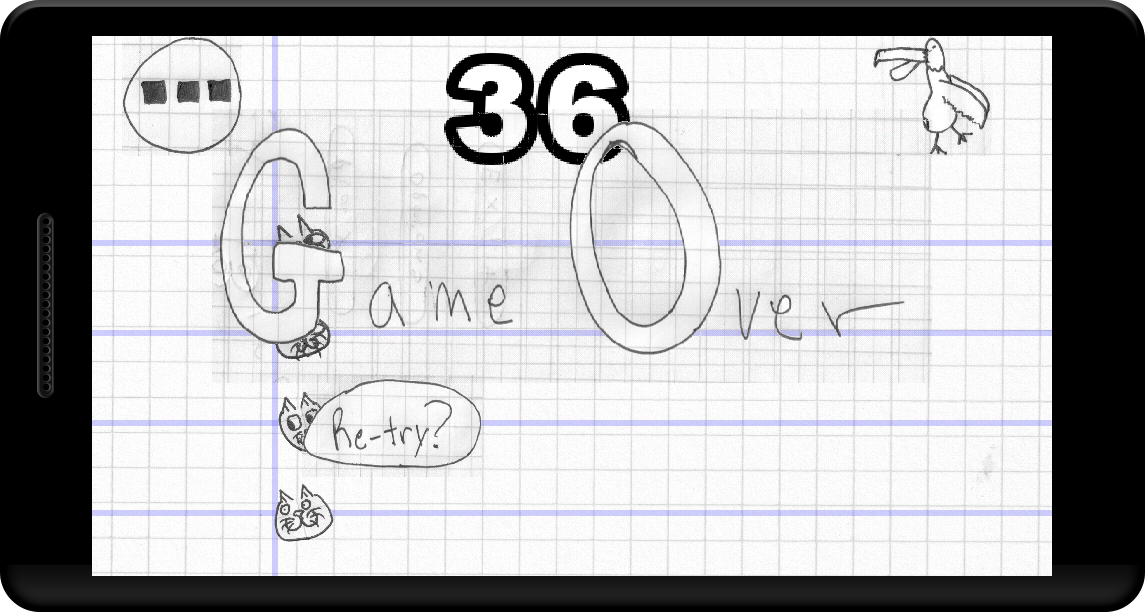 36
Game Over
Re-try?